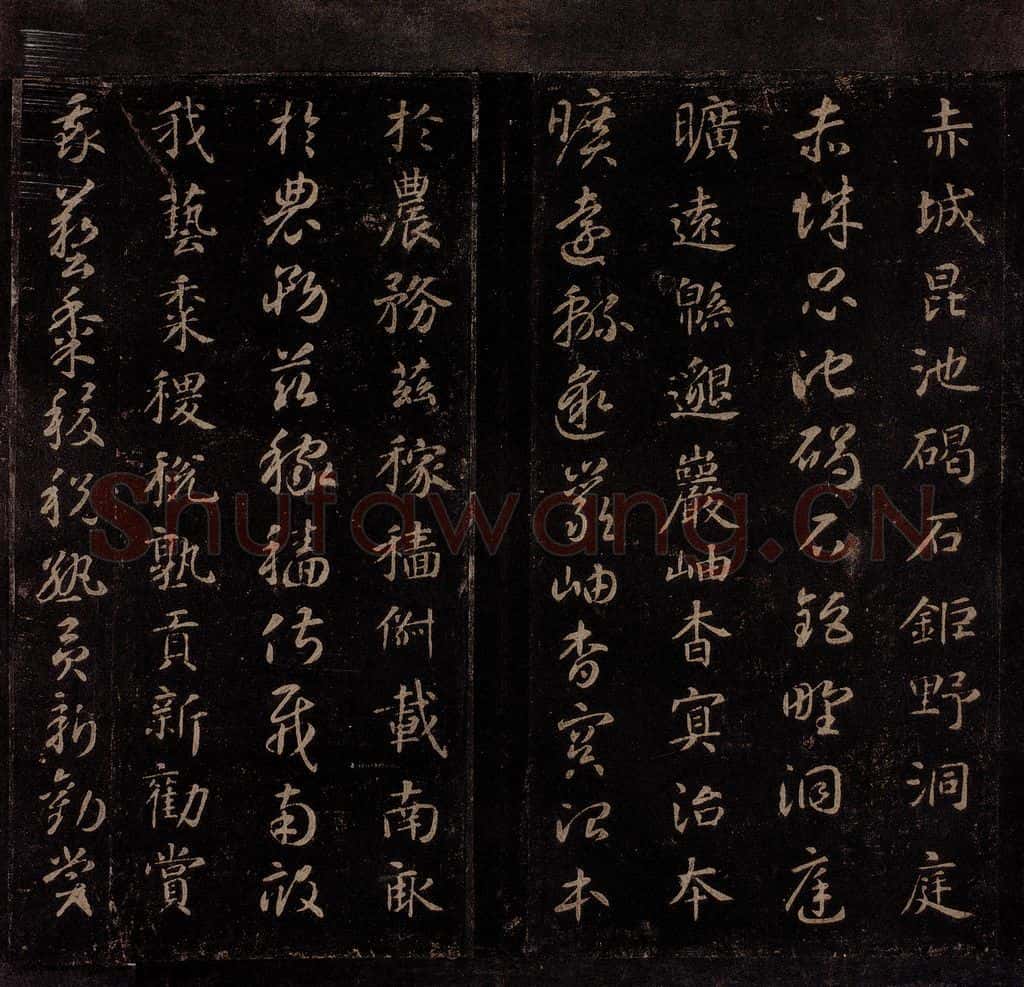 赤城昆池碣石鉅野洞庭
赤城昆池碣石鉅野洞庭
曠遠緜邈巖岫杳冥治本
曠遠緜邈巖岫杳冥治本
於農務茲稼穡俶載南畝
於農務茲稼穡俶載南畝
我藝黍稷稅孰貢新勸賞
我藝黍稷稅熟貢新勸賞
Shufawang.CN